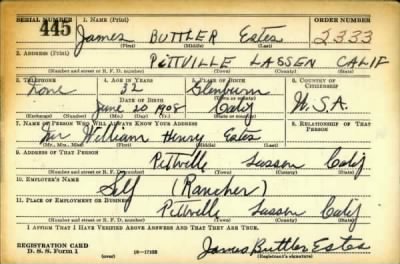 SERIAL NUMBER 1. NAME (Print) ORDER NUMBER
445 James BUTTLER Estes 2333
(First) (Middle) (Last)
2. ADDRESS (Print)
PITTVILLE LASSEN CALIF
(Number and street or R. F. D. number) (Town) (County) (State)
3. TELEPHONE 4. AGE IN YEARS 5. PLACE OF BIRTH 6. COUNTRY OF CITIZENSHIP
None 32 Glenburn
DATE OF BIRTH
June 20 1908 Calif U.S.A.
(Exchange) (Number) (Mo.) (Day) (Yr.) (State or country)
7. NAME OF PERSON WHO WILL ALWAYS KNOW YOUR ADDRESS 8. RELATIONSHIP OF THAT PERSON
Mr William Henry Estes
(Mr., Mrs., Miss) (First) (Middle) (Last)
9. ADDRESS OF THAT PERSON
Pittville Lassen Calif
(Number and street or R. F. D. number) (Town) (County) (State)
10. EMPLOYER'S NAME
Self (Rancher)
11. PLACE OF EMPLOYMENT OR BUSINESS
Pittville Lassen Calif
(Number and street or R. F. D. number) (Town) (County) (State)
I AFFIRM THAT I HAVE VERIFIED ABOVE ANSWERS AND THAT THEY ARE TRUE.
REGISTRATION CARD
D. S. S. Form 1 (over) James Buttler Estes
(Registrant's signature)